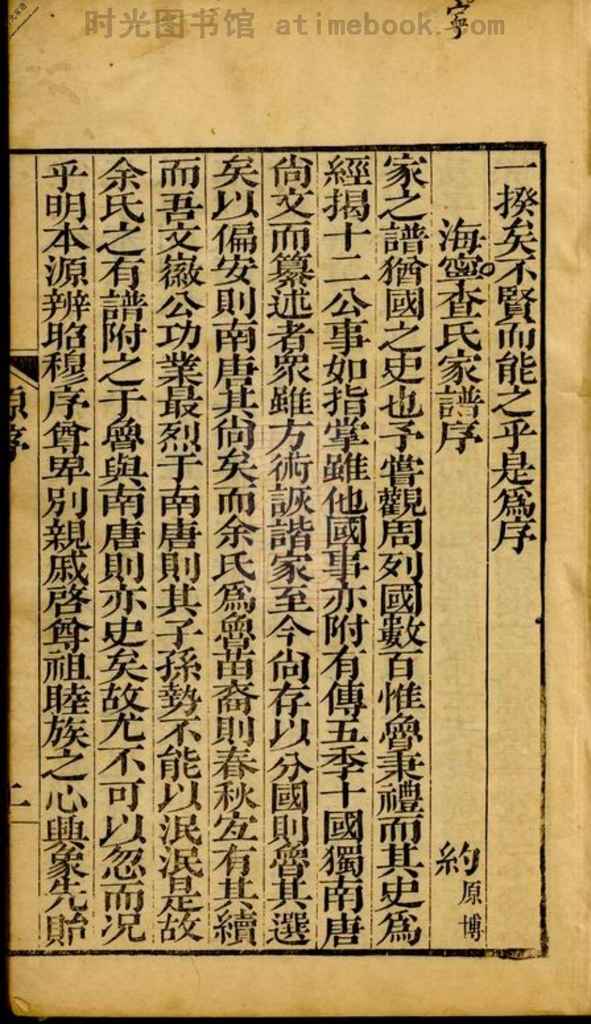 时光图书馆 atimebook.com
寧
一揆矣不賢而能之乎是爲序
海寧查氏家譜序
約原博
家之譜猶國之史也予嘗觀周列國數百惟魯秉禮而其史爲
經揭十二公事如指掌雖他國事亦附有傳五季十國獨南唐
尙文而纂述者衆雖方術詼諧家至今尙存以分國則魯其選
矣以偏安則南唐其尙矣而余氏爲魯苗裔則春秋宜有其續
而吾文徽公功業最烈于南唐則其子孫勢不能以泯泯是故
余氏之有譜附之于魯與南唐則亦史矣故尤不可以忽而况
乎明本源辨昭穆序尊卑別親戚啓尊祖睦族之心興象先貽
原序
二